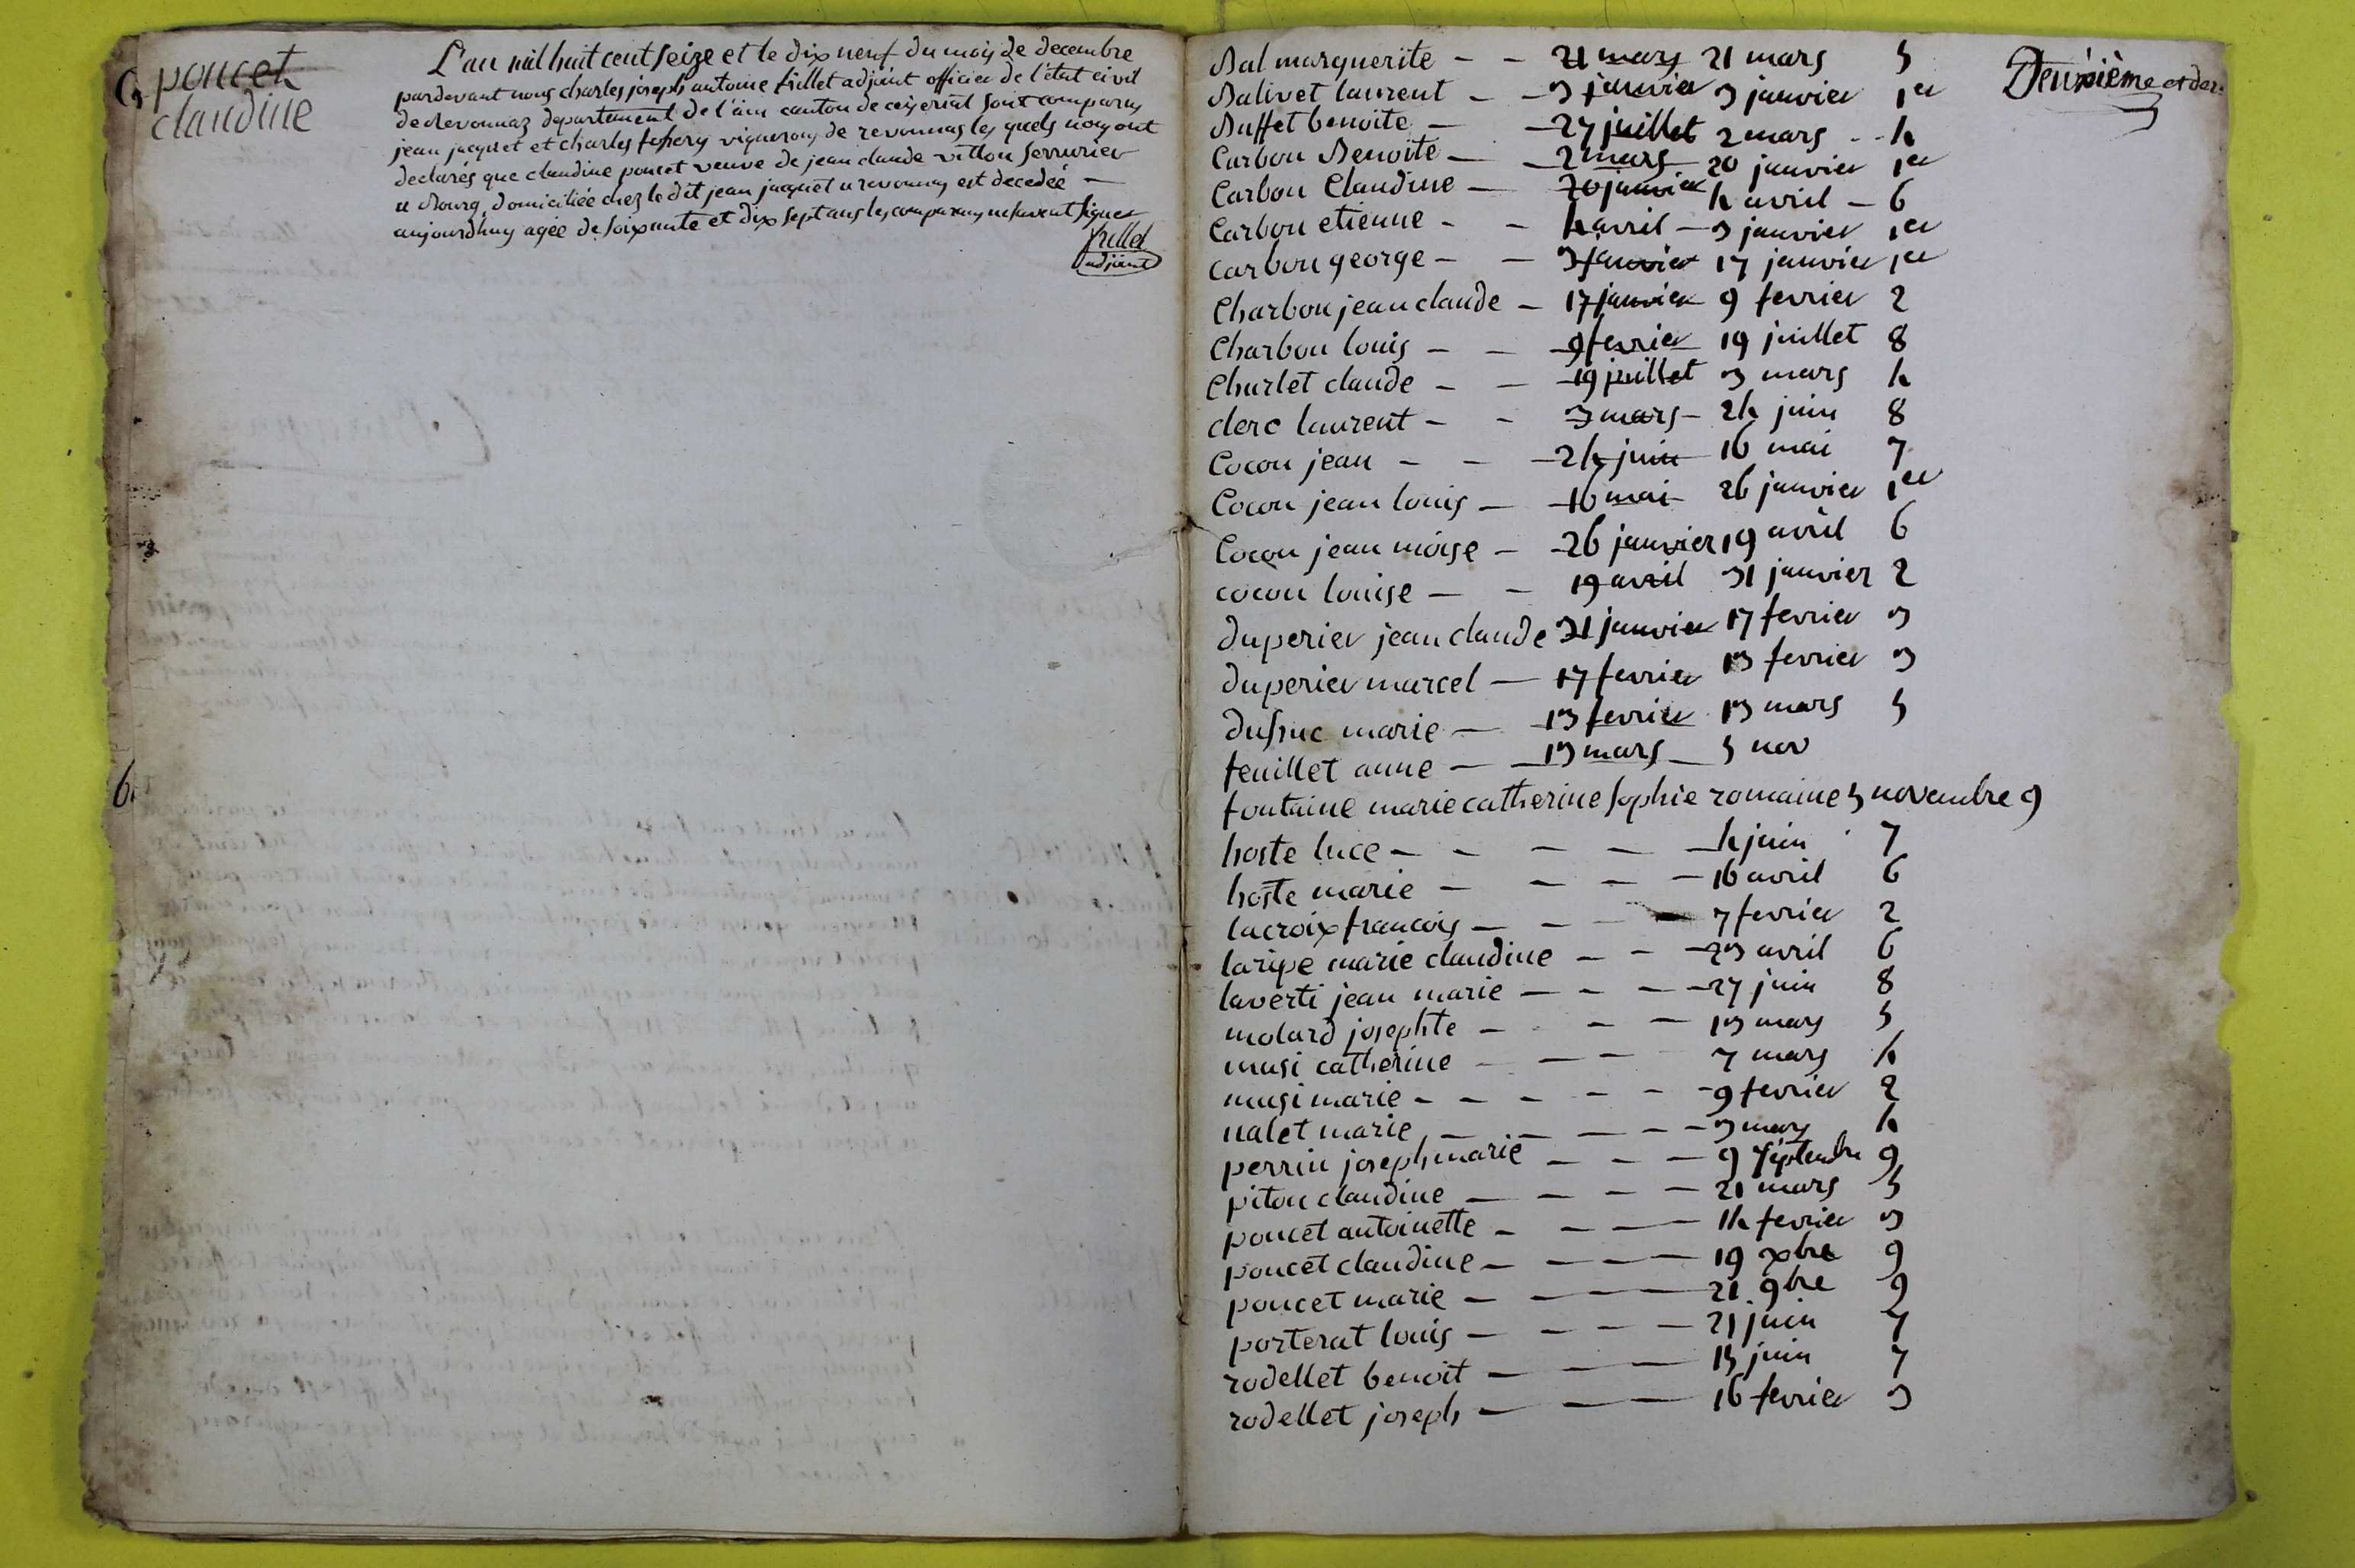 poncet
claudine
L'an mil huit cent seize et le dix neuf du mois de decembre
pardevant nous charles joseph antoine frillet adjoint officier de l'état civil
de Revonnaz departement de l'ain canton de ceizeriat sont comparus
jean jacquet et charles vignerons de revonnas les quels nous ont
declarés que claudine poncet veuve de jean claude villon serrurier
a Bourg, domiciliée chez le dit jean jacquet a revonnas est decedée
aujourd'huy agée de soixante et dix sept ans les comparans ne savent signer
frillet
adjoint
6
Bal marguerite - - 21 mars 21 mars 5
Balivet laurent - - 3 janvier 3 janvier 1er
Buffet benoite - - 27 juillet 2 mars - - 4
Carbon Benoite - - 2 mars 20 janvier 1er
Carbon Claudine - 20 janvier 4 avril - 6
Carbon etienne - - 4 avril - 3 janvier 1er
Carbon george - - 3 janvier 17 janvier 1er
Charbon jean claude - 17 janvier 9 fevrier 2
Charbon louis - - 9 fevrier 19 juillet 8
Churlet claude - - 19 juillet 3 mars 4
clerc laurent - - 3 mars - 24 juin 8
Cocon jean - - 24 juin 16 mai 7
Cocon jean louis - 16 mai 26 janvier 1er
Cocon jean moise - 26 janvier 19 avril 6
cocon louise - - 19 avril 31 janvier 2
duperier jean claude 31 janvier 17 fevrier 3
duperier marcel - 17 fevrier 13 fevrier 3
dufsuc marie - 13 fevrier 13 mars 5
feuillet anne - 13 mars - 5 nov
fontaine marie catherine sophie romaine 5 novembre 9
hoste luce - - - - 4 juin 7
hoste marie - - - - 16 avril 6
lacroix francois - - - 7 fevrier 2
laripe marie claudine - - - 23 avril 6
laverti jean marie - - - - 27 juin 8
molard josephte - - - 13 mars 5
musi catherine - - - 7 mars 4
musi marie - - - - - - 9 fevrier 2
nalet marie, - - - - - 3 mars 4
perrin joseph marie - - - 9 septembre 9
piton claudine - - - - 21 mars 5
poncet antoinette - - - 14 fevrier 3
poncet claudine - - - - 19 xbre 9
poncet marie - - - 21 9bre 9
porterat louis - - - - 21 juin 7
rodellet benoit - - - 15 juin 7
rodellet joseph - - - 16 fevrier 3
Deuxième et der.